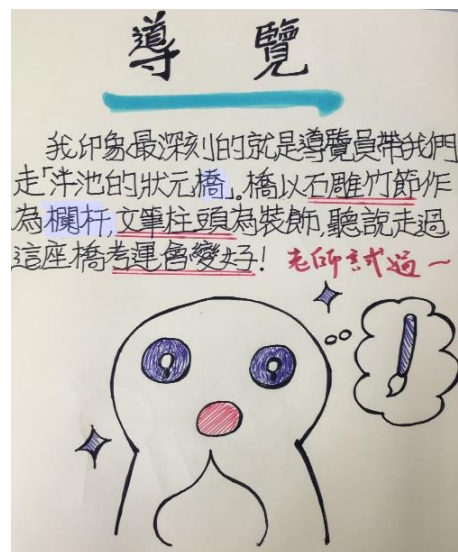 導覽
我印象最深刻的就是導覽員帶我們
走「泮池的狀元橋」。橋以石雕竹節作
為欄杆,文筆柱頭為裝飾,聽說走過
這座橋考運會變好! 老師試過~